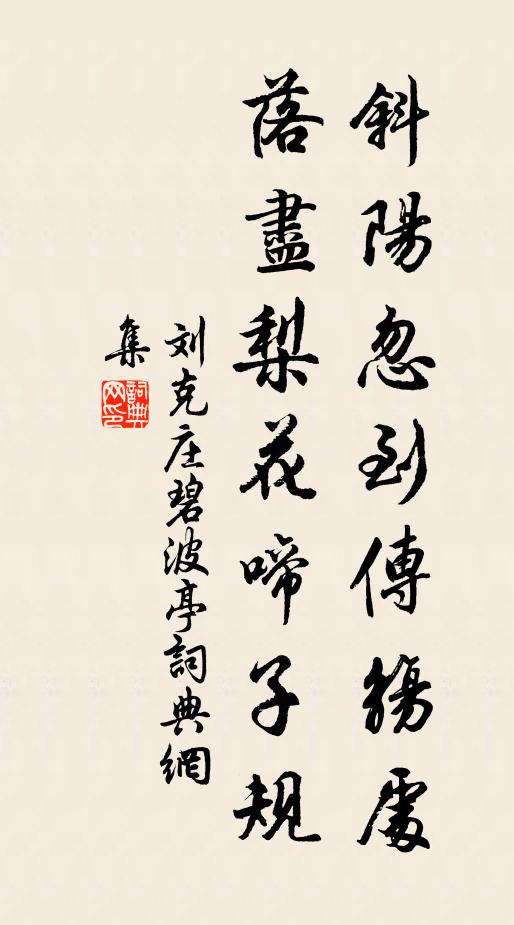 斜陽忽到傳觴處
落盡梨花啼子規
刘克庄碧波亭詞典網
集
詞典
网印